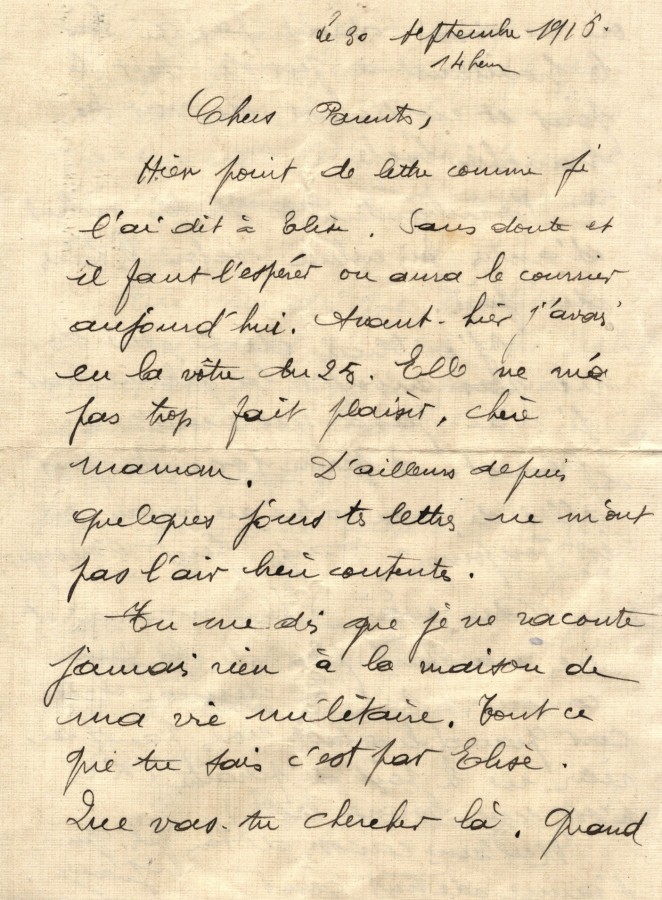 le 30 septembre 1916.
14 heures
Chers Parents,
Hier point de lettre comme je
l'ai dit à Elise. Sans doute et
il faut l'espérer on aura le courrier
aujourd'hui. Avant-hier j'avais
eu la vôtre du 25. Elle ne m'a
pas trop fait plaisir, chère
maman. D'ailleurs depuis
quelques jours tes lettres ne m'ont
pas l'air bien contentes.
Tu me dis que je ne raconte
jamais rien à la maison de
ma vie militaire. Tout ce
que tu sais c'est par Elise.
Que vas-tu chercher là. Quand